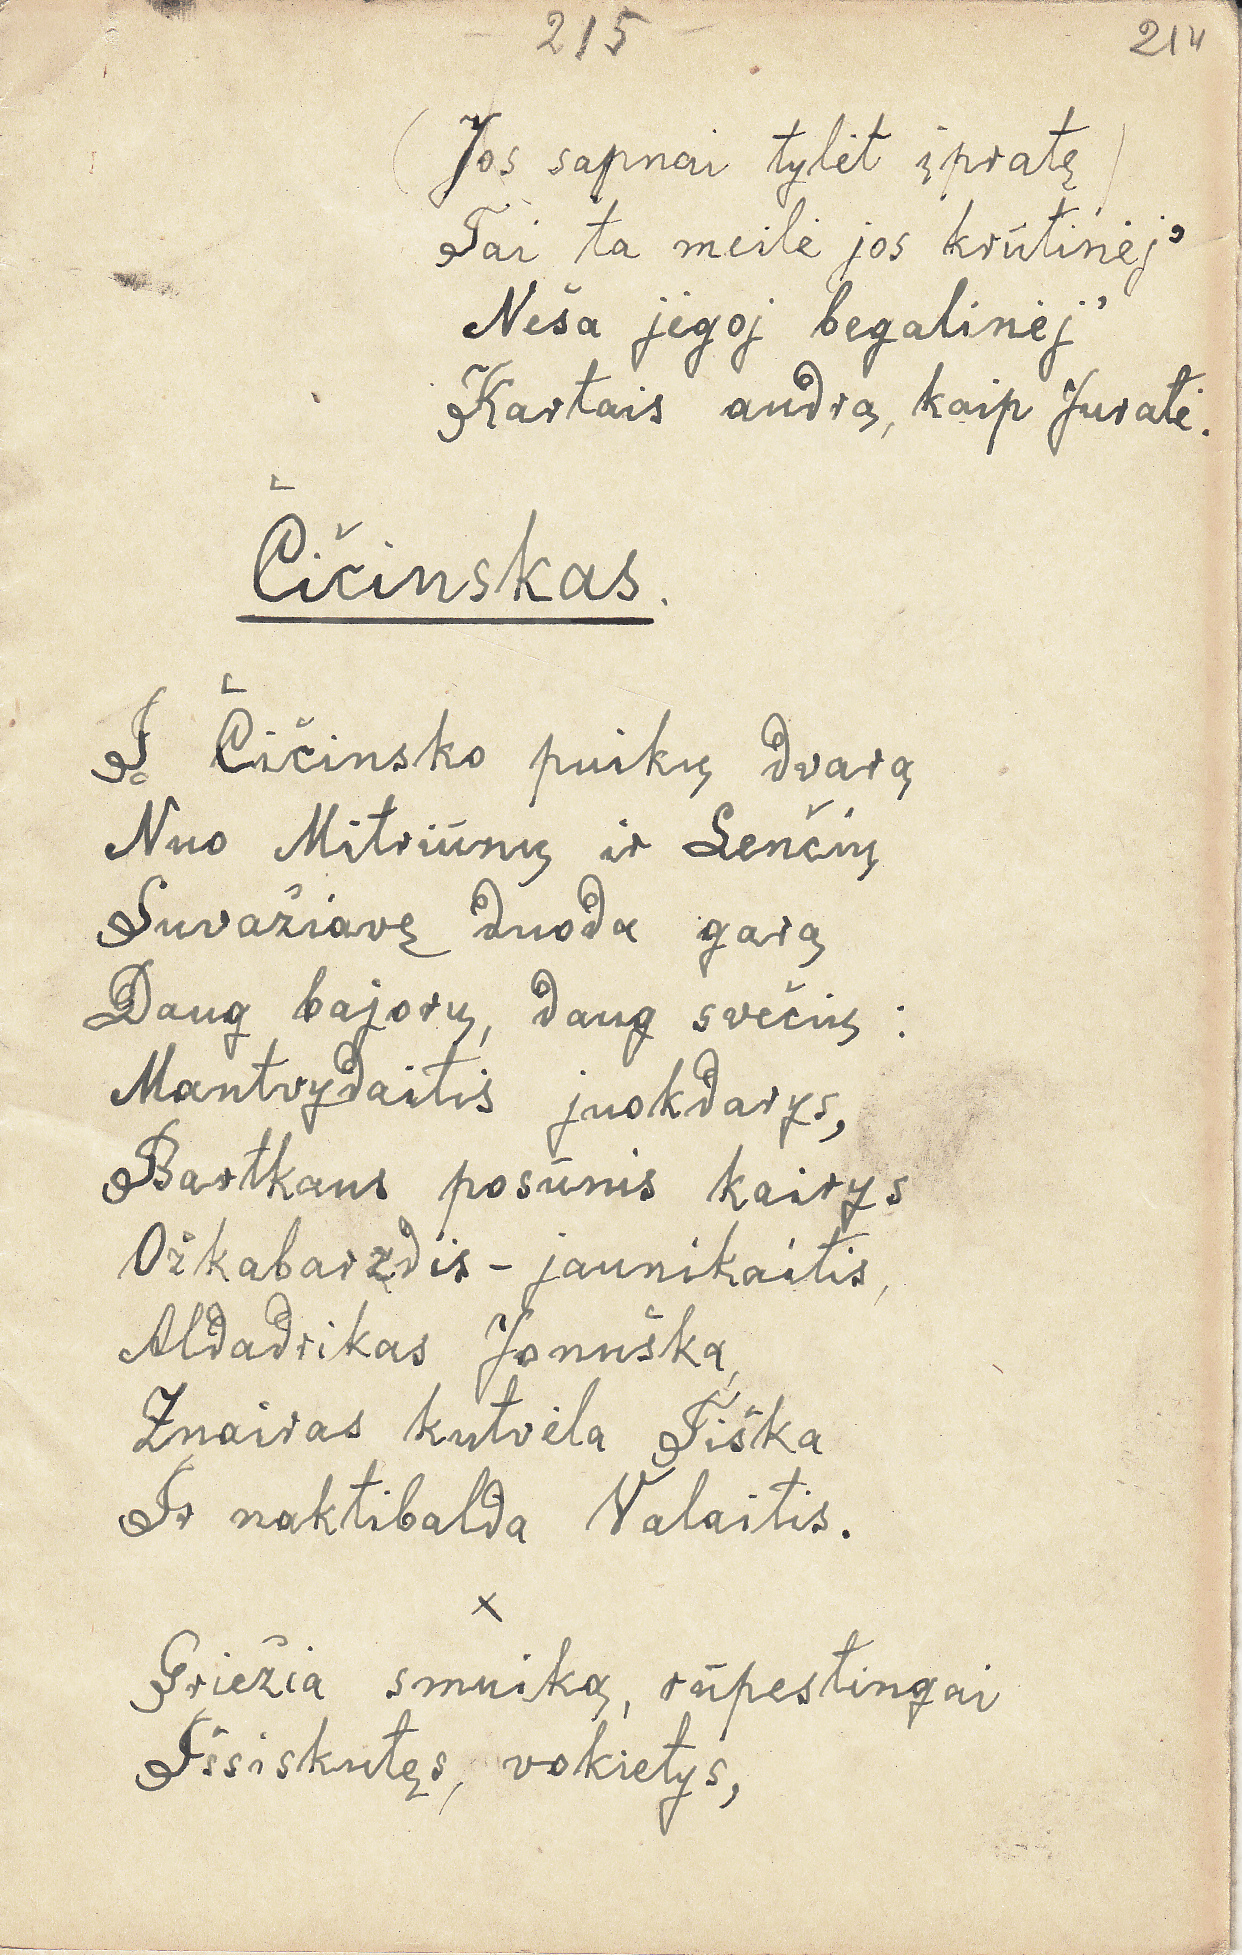 - 215 -
214
(Jos sapnai tylėt įpratę)
Tai ta meilė jos krūtinėj'
Neša jėgoj begalinėj'
Kartais audrą, kaip Juratė.
Čičinskas.
Į Čičinsko puikų dvarą
Nuo Mitriūnų ir Lenčių
Suvažiavę duoda garą
Daug bajorų, daug svečių:
Mantvydaitis juokdarys,
Bartkaus posūnis kairys
Ožkabarzdis - jaunikaitis,
Aldadrikas Jonuška,
Žnairas kutvėla Tiška
Ir naktibalda Valaitis.
x
Griežia smuiką, rūpestingai
Išsiskutęs, vokietys,